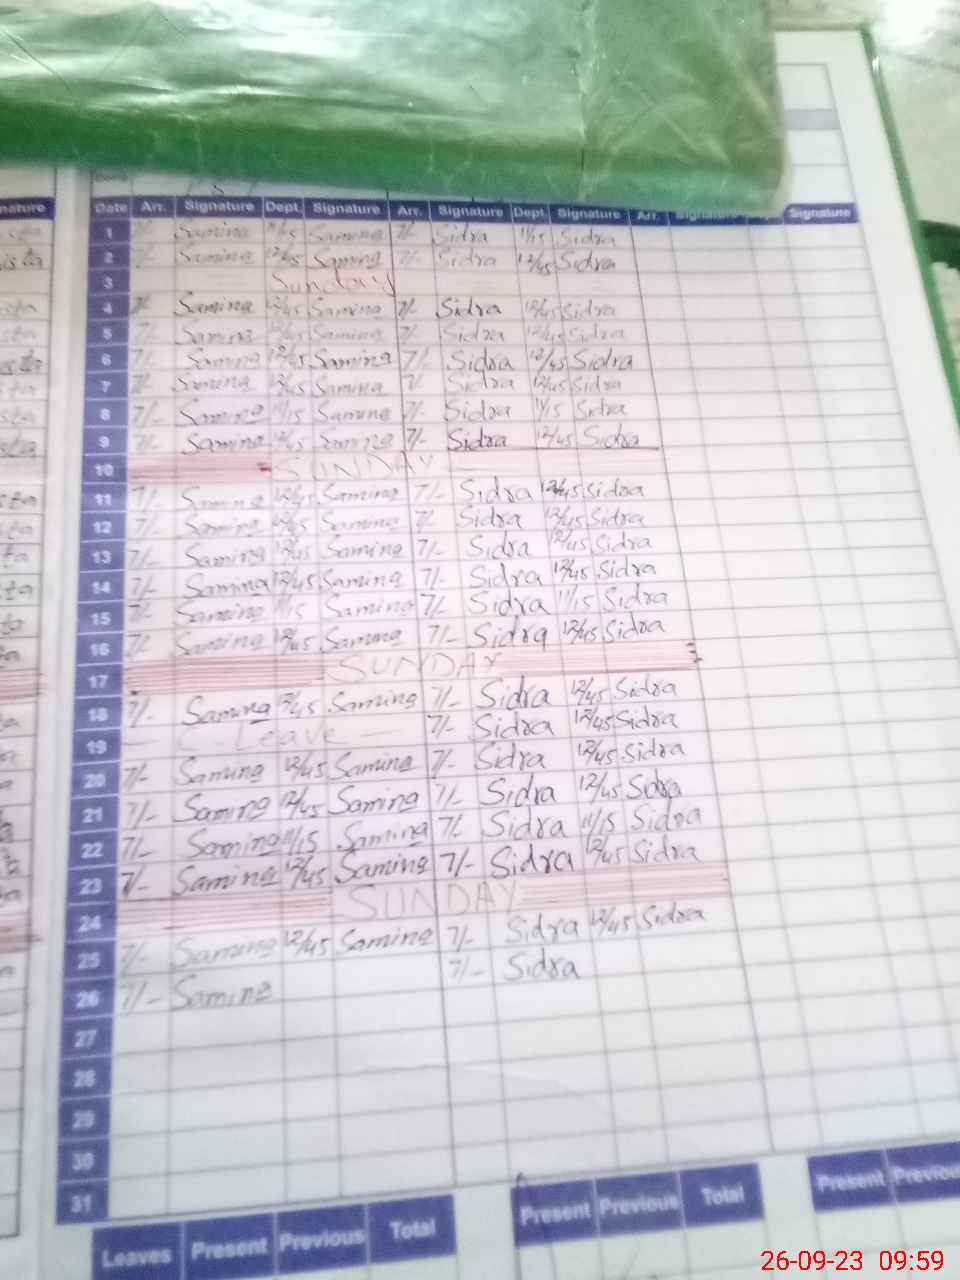 nature Date Arr. Signature Dept. Signature Arr. Signature Dept. Signature Arr. Signature Signature
1 7/- Samina 11/15 Samina 7/- Sidra 11/15 Sidra
ista 2 7/- Samina 12/45 Samina 7/- Sidra 12/45 Sidra
3 Sunday
sta 4 7/- Samina 12/45 Samina 7/- Sidra 12/45 Sidra
sta 5 7/- Samina 12/45 Samina 7/- Sidra 12/45 Sidra
6 7/- Samina 12/45 Samina 7/- Sidra 12/45 Sidra
sta 7 7/- Samina 12/45 Samina 7/- Sidra 12/45 Sidra
sta 8 7/- Samina 11/15 Samina 7/- Sidra 11/15 Sidra
sta 9 7/- Samina 12/45 Samina 7/- Sidra 12/45 Sidra
10 SUNDAY
sta 11 7/- Samina 12/45 Samina 7/- Sidra 12/45 Sidra
ta 12 7/- Samina 12/45 Samina 7/- Sidra 12/45 Sidra
ta 13 7/- Samina 12/45 Samina 7/- Sidra 12/45 Sidra
ta 14 7/- Samina 12/45 Samina 7/- Sidra 12/45 Sidra
ta 15 7/- Samina 11/15 Samina 7/- Sidra 11/15 Sidra
a 16 7/- Samina 12/45 Samina 7/- Sidra 12/45 Sidra
17 SUNDAY
a 18 7/- Samina 12/45 Samina 7/- Sidra 12/45 Sidra
19 C-Leave 7/- Sidra 12/45 Sidra
a 20 7/- Samina 12/45 Samina 7/- Sidra 12/45 Sidra
21 7/- Samina 12/45 Samina 7/- Sidra 12/45 Sidra
22 7/- Samina 11/15 Samina 7/- Sidra 11/15 Sidra
23 7/- Samina 12/45 Samina 7/- Sidra 12/45 Sidra
24 SUNDAY
25 7/- Samina 12/45 Samina 7/- Sidra 12/45 Sidra
26 7/- Samina 7/- Sidra
27
28
29
30
31
Leaves Present Previous Total Present Previous Total Present Previou
26-09-23 09:59